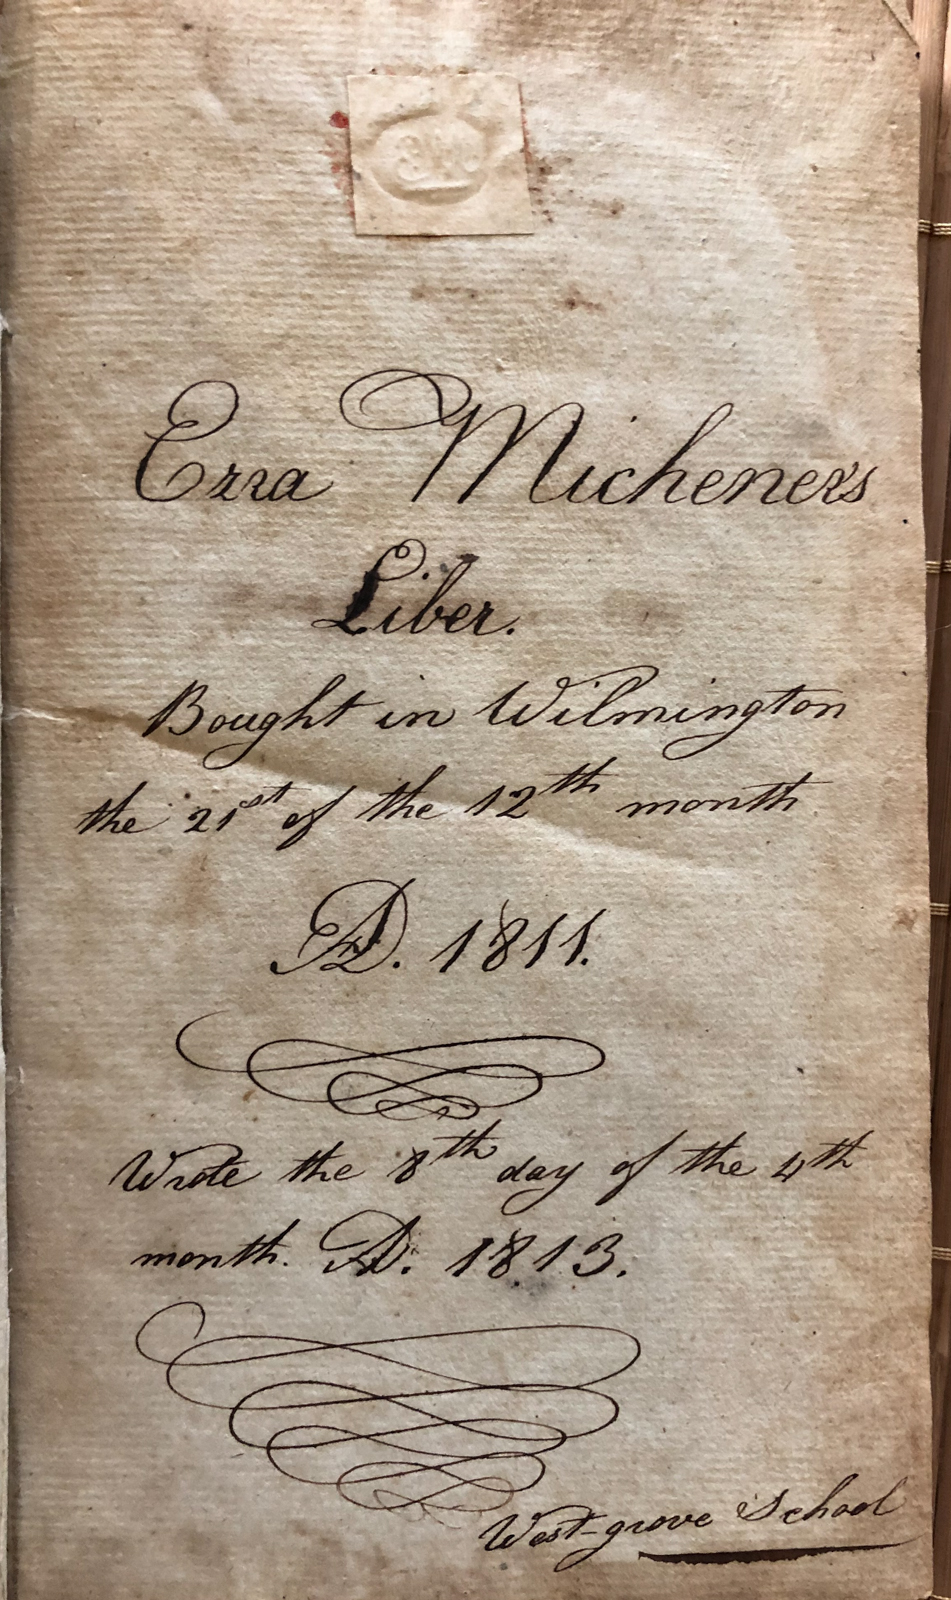 Ezra Micheners
Liber.
Bought in Wilmington
the 21st of the 12th month
AD. 1811.
Wrote the 8th day of the 4th
month. AD. 1813.
West-grove School